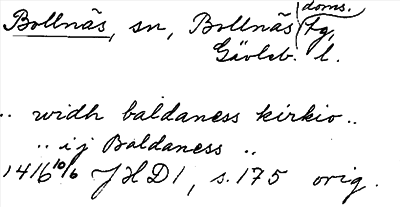 Bollnäs, sn, Bollnäs (doms.) tg,
Gävleb. l.
.. widh baldaness kirkio ..
.. i j Baldaness ..
1416 10/6 JHD 1, s. 175 orig.